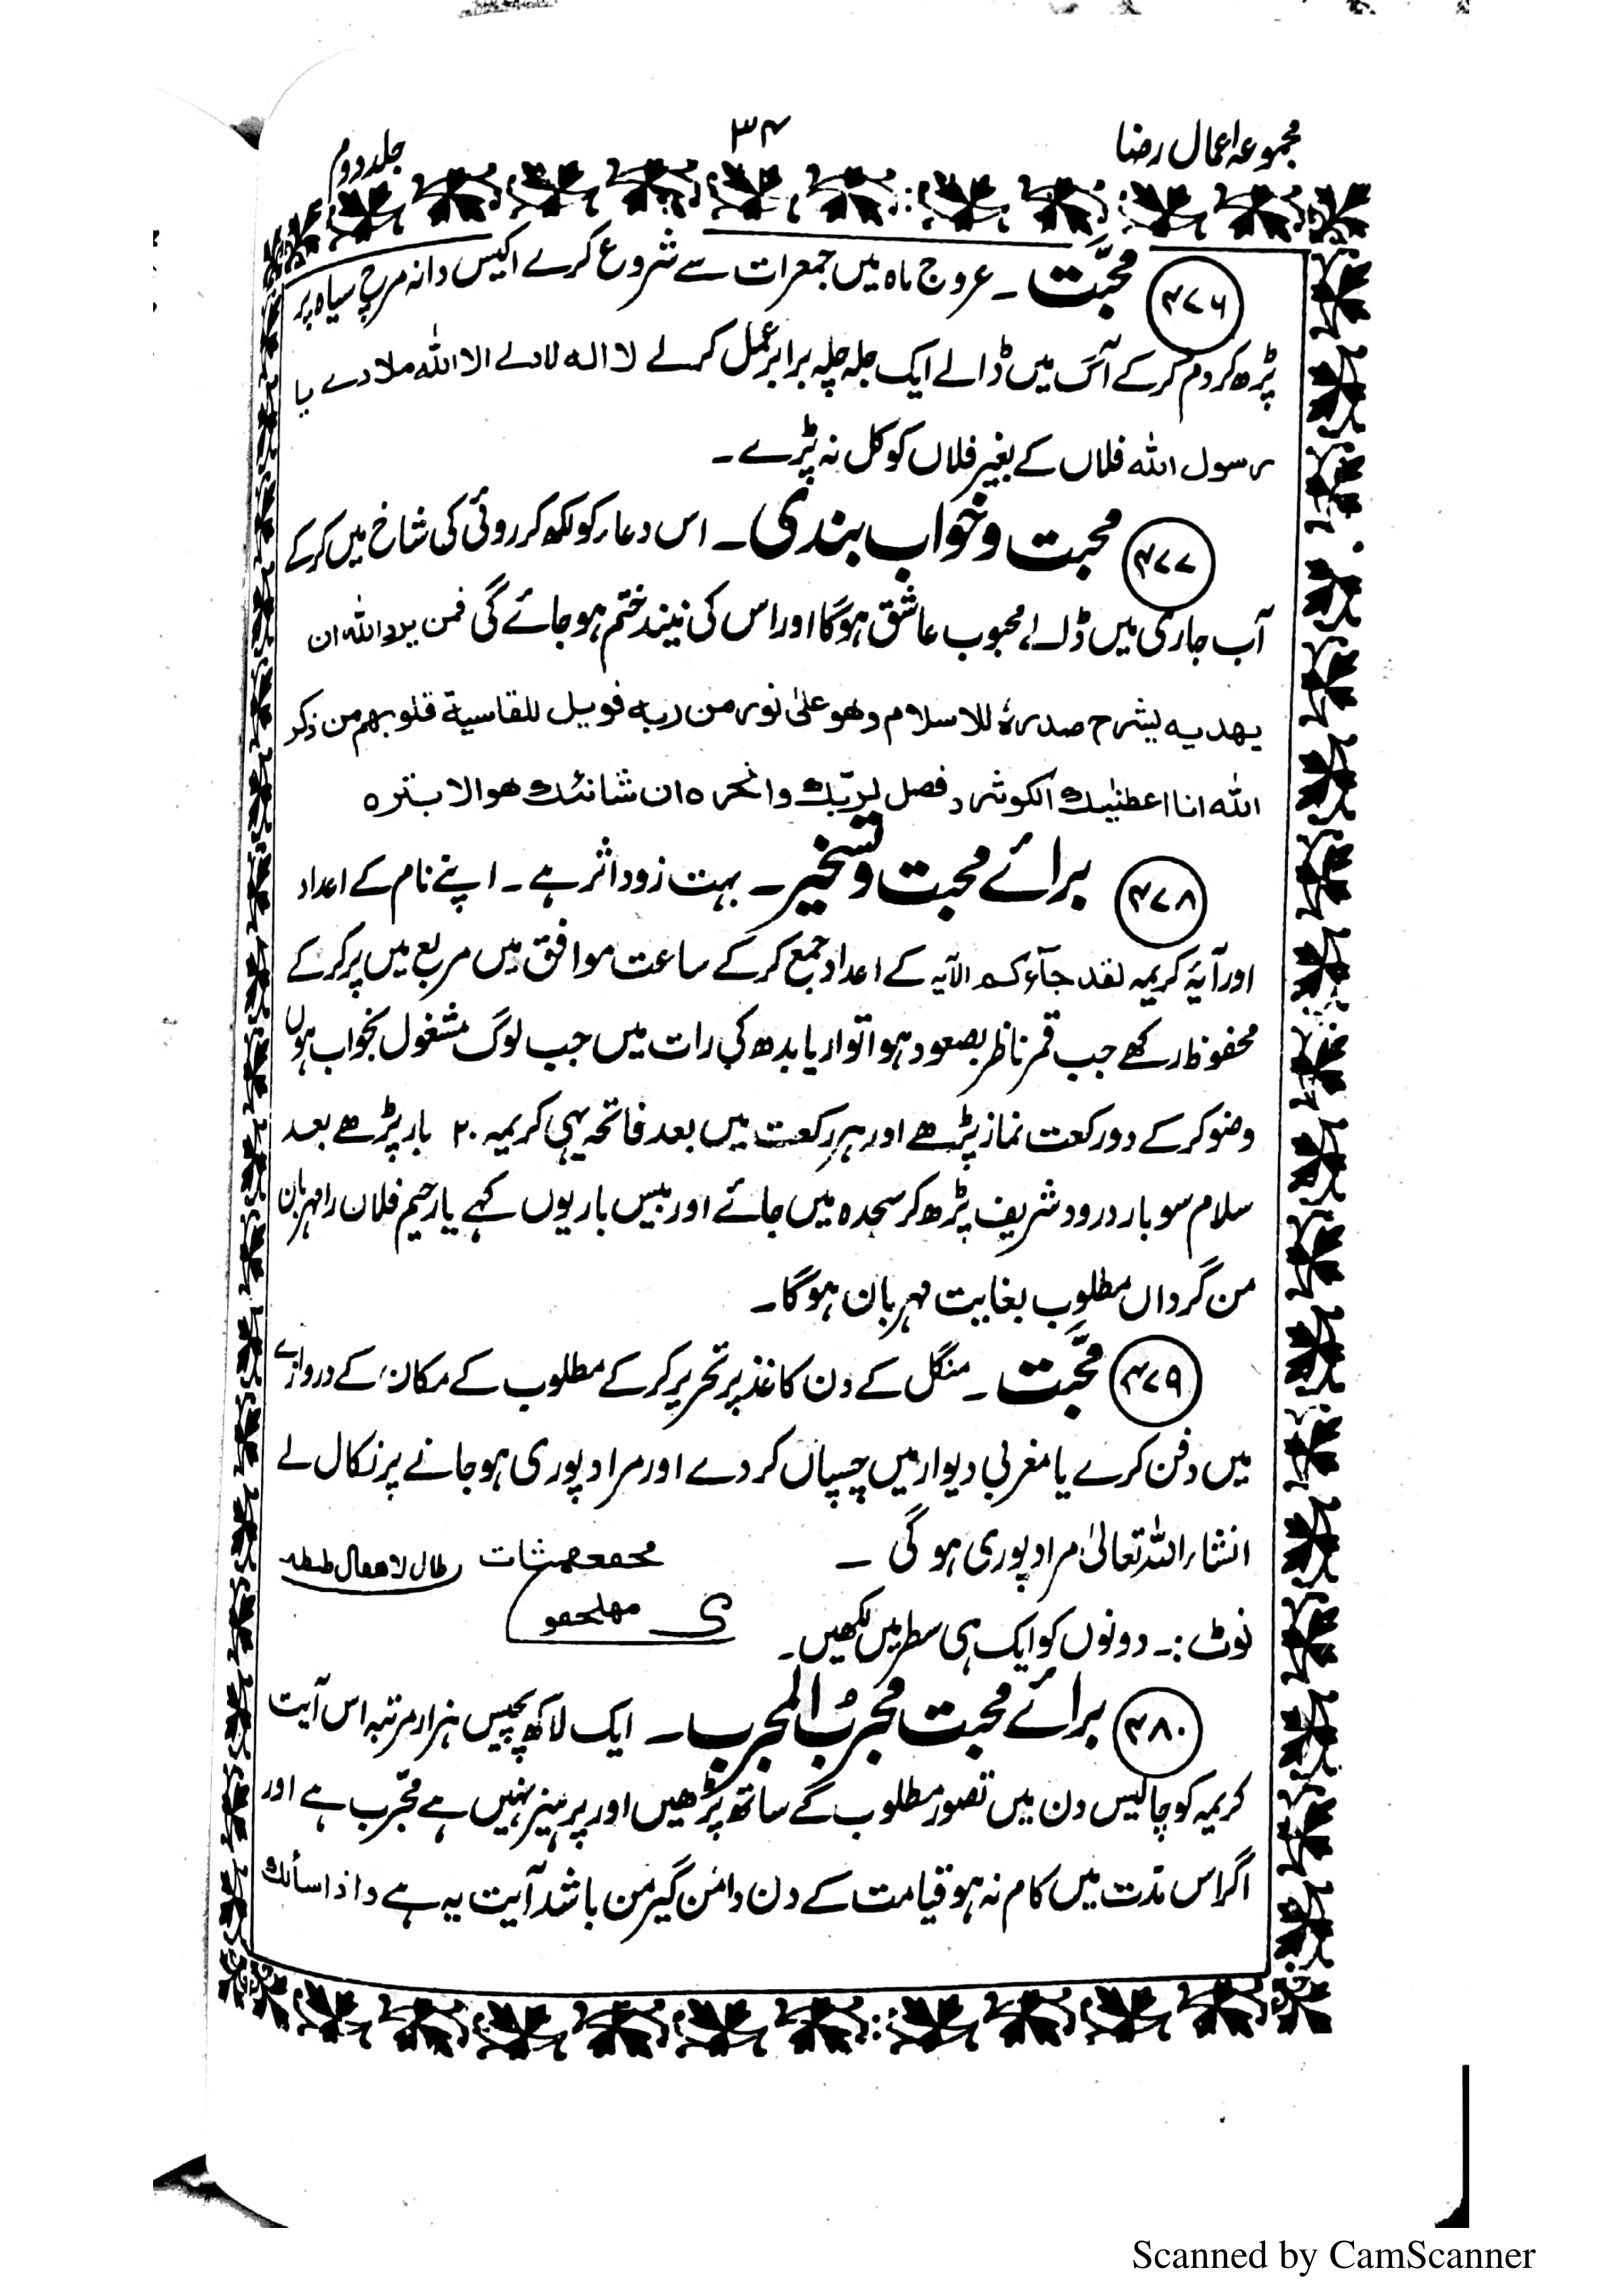 مجموعہ اعمال رضا
۳۴
جلد دوم
۴۷۶ محبّت ۔ عروج ماہ میں جمعرات سے شروع کرے اکیس دانہ مرچ سیاہ پر
پڑھ کر دم کرکے آگ میں ڈالے ایک چلہ برابر عمل کرلے لا الہ لادلے الا اللہ ملادے یا
رسول اللہ فلاں کے بغیر فلاں کو کل نہ پڑے ۔
۴۷۷ محبت و خواب بندی ۔ اس دعار کو لکھ کر روئی کی شاخ میں کرکے
آب جاری میں ڈالے محبوب عاشق ہوگا اور اس کی نیند ختم ہوجائے گی فمن یرد اللہ ان
یھدیہ یشرح صدرہ للاسلام وھو علیٰ نور من ربہ فویل للقاسیۃ قلوبھم من ذکر
اللہ انا اعطنیک الکوثر ہ فصل لربّک وانحر ہ ان شانئک ھو الابتر ہ
۴۷۸ برائے محبت و تسخیر ۔ بہت زود اثر ہے ۔ اپنے نام کے اعداد
اور آیۂ کریمہ لقد جآءکم الآیہ کے اعداد جمع کرکے ساعت موافق میں مربع میں پر کرکے
محفوظ رکھے جب قمر ناظر بصعود ہو اتوار یا بدھ کی رات میں جب لوگ مشغول بخواب ہوں
وضو کرکے دو رکعت نماز پڑھے اور ہر رکعت میں بعد فاتحہ یہی کریمہ ۲۰ بار پڑھے بعد
سلام سو بار درود شریف پڑھ کر سجدہ میں جائے اور بیس بار یوں کہے یا رحیم فلان را مہربان
من گرداں مطلوب بغایت مہربان ہوگا ۔
۴۷۹ محبّت ۔ منگل کے دن کاغذ پر تحریر کرکے مطلوب کے مکان کے دروازے
میں دفن کرے یا مغربی دیوار میں چسپاں کردے اور مراد پوری ہوجانے پر نکال لے
انشاء اللہ تعالیٰ مراد پوری ہوگی ۔
نوٹ :۔ دونوں کو ایک ہی سطر میں لکھیں ۔
۴۸۰ برائے محبت مجربُ المجرب ۔ ایک لاکھ پچیس ہزار مرتبہ اس آیت
کریمہ کو چالیس دن میں تصور مطلوب کے ساتھ پڑھیں اور پرہیز نہیں ہے مجّرب ہے اور
اگر اس مدّت میں کام نہ ہو قیامت کے دن دامن گیر من باشد آیت یہ ہے واذا سألک
Scanned by CamScanner